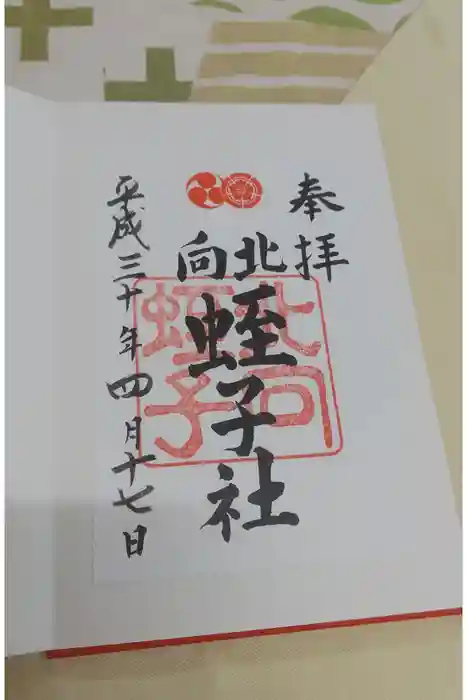 奉拝
北向
蛭子社
北向
蛭子
平成三十年四月十七日